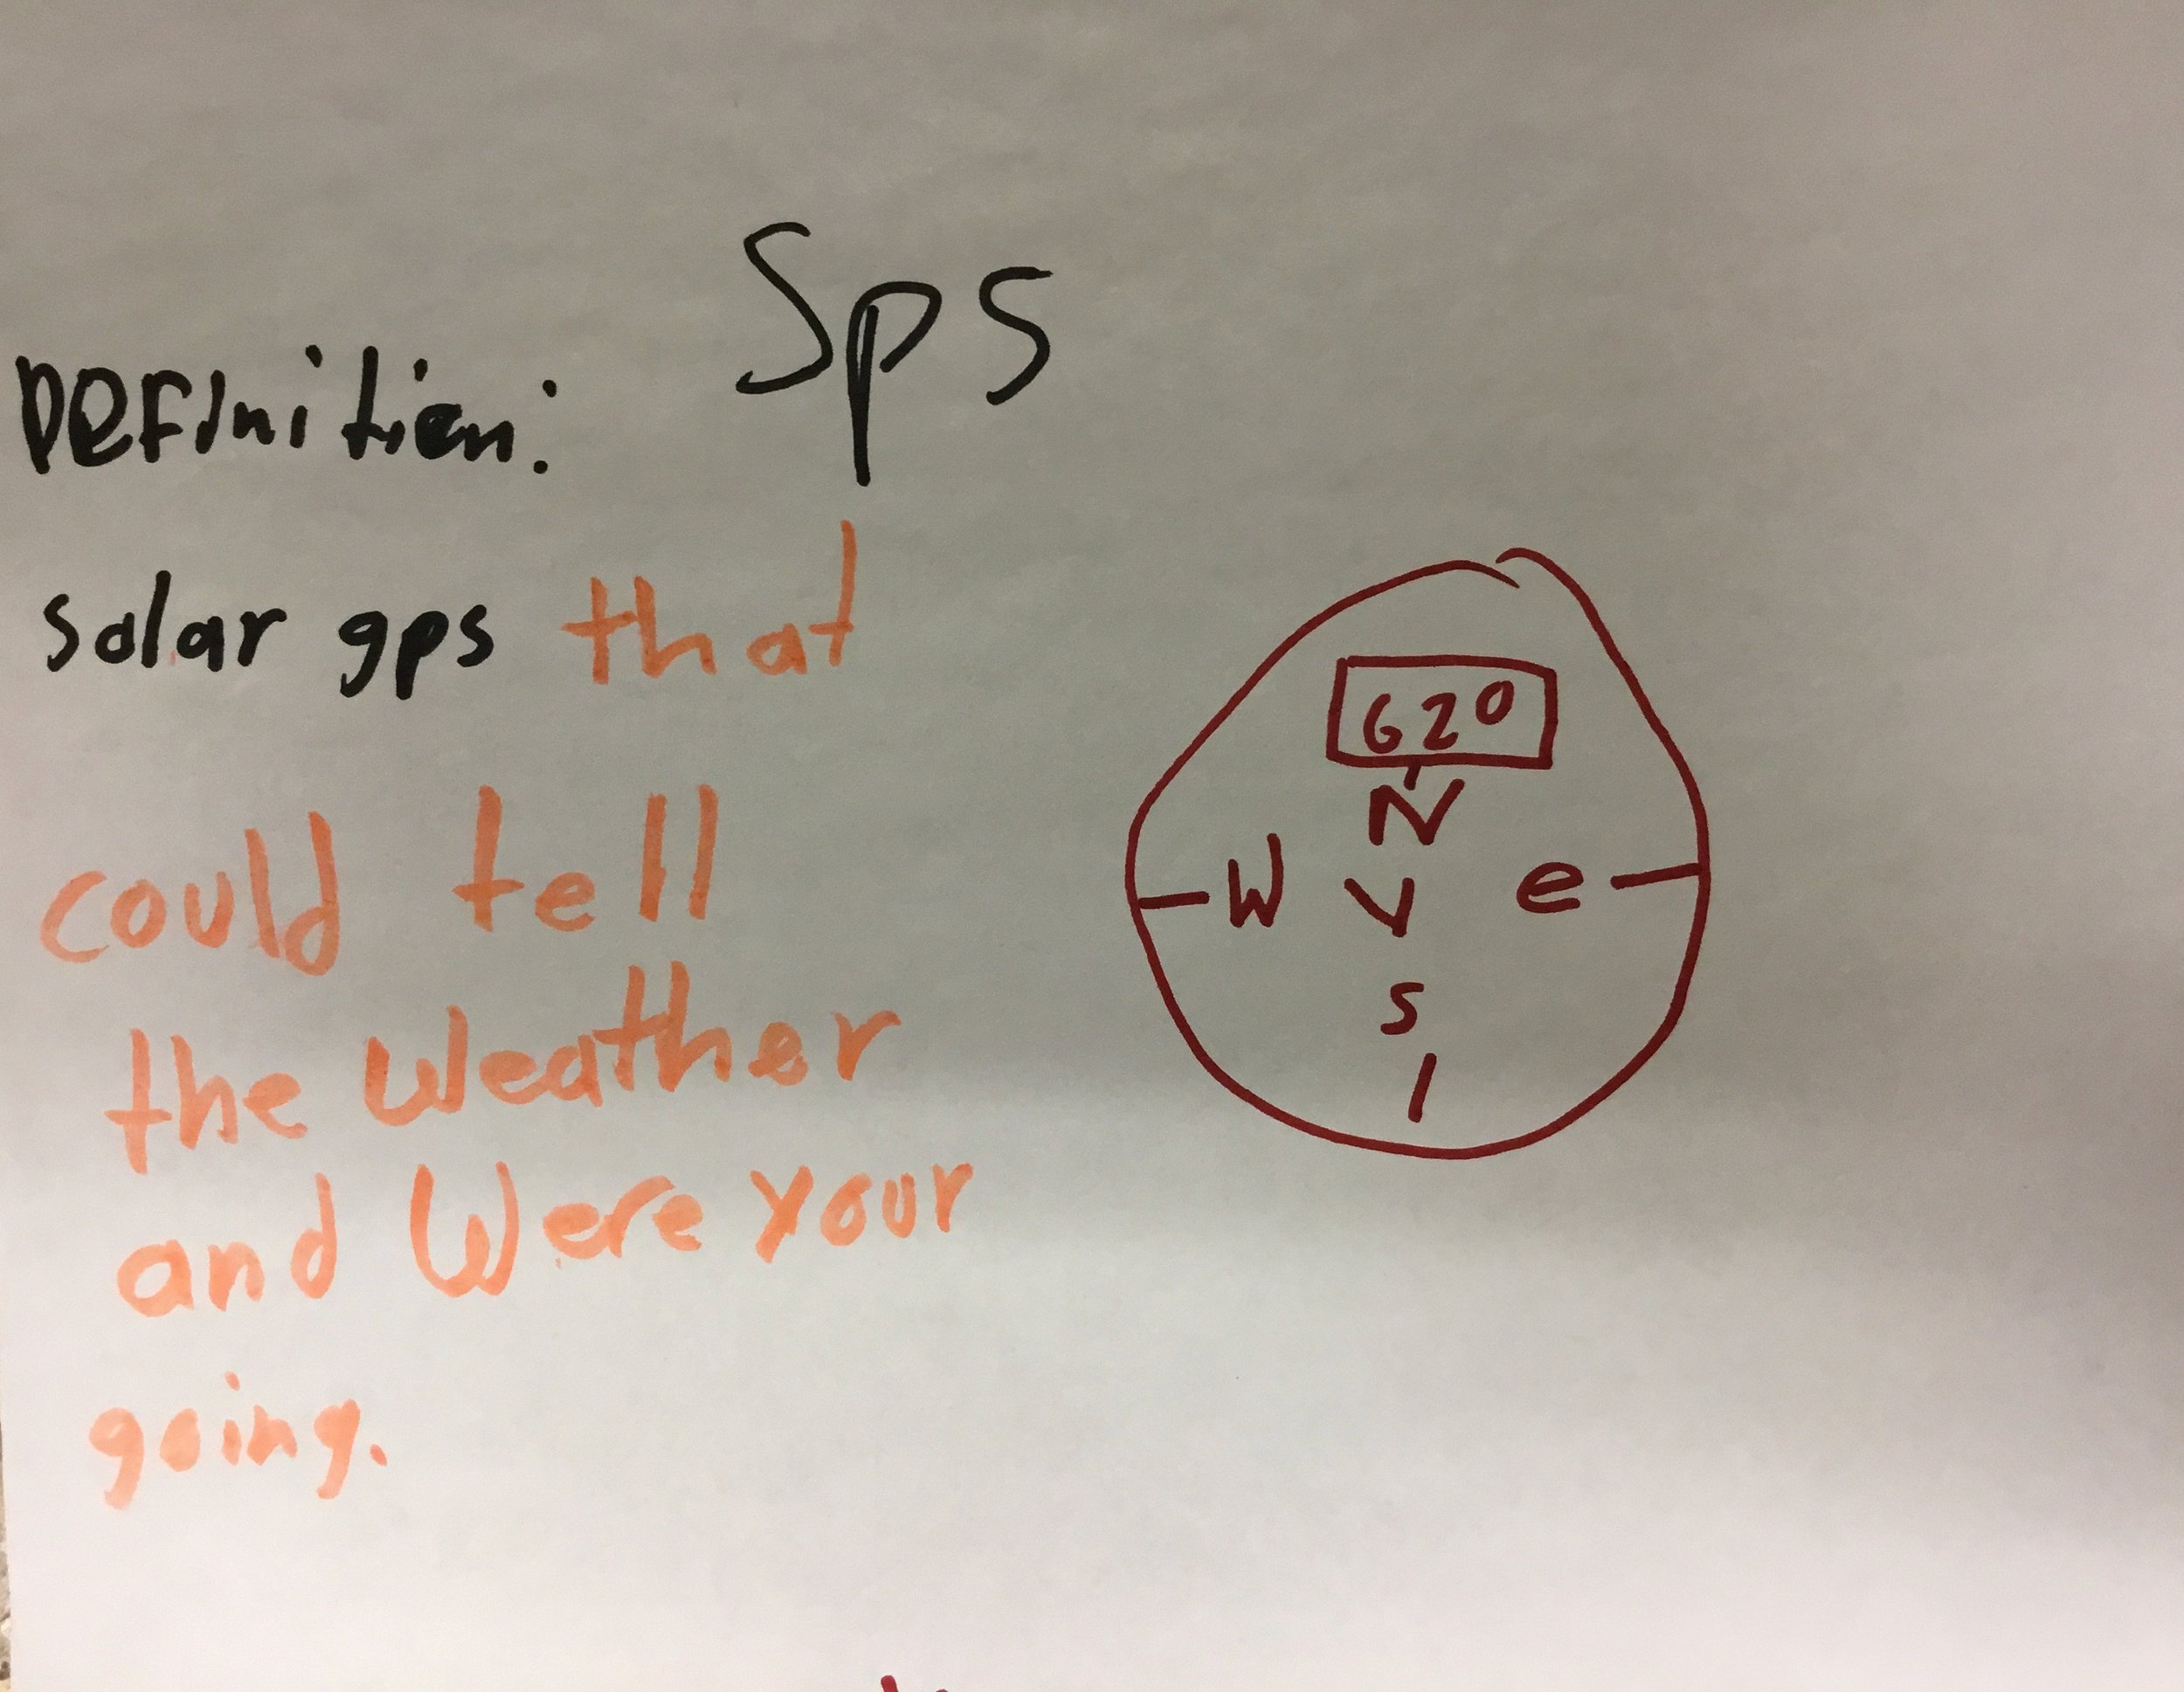 Sps
Definition:
solar gps that
could tell
the weather
and Were your
going.
62°
N
W V e
S